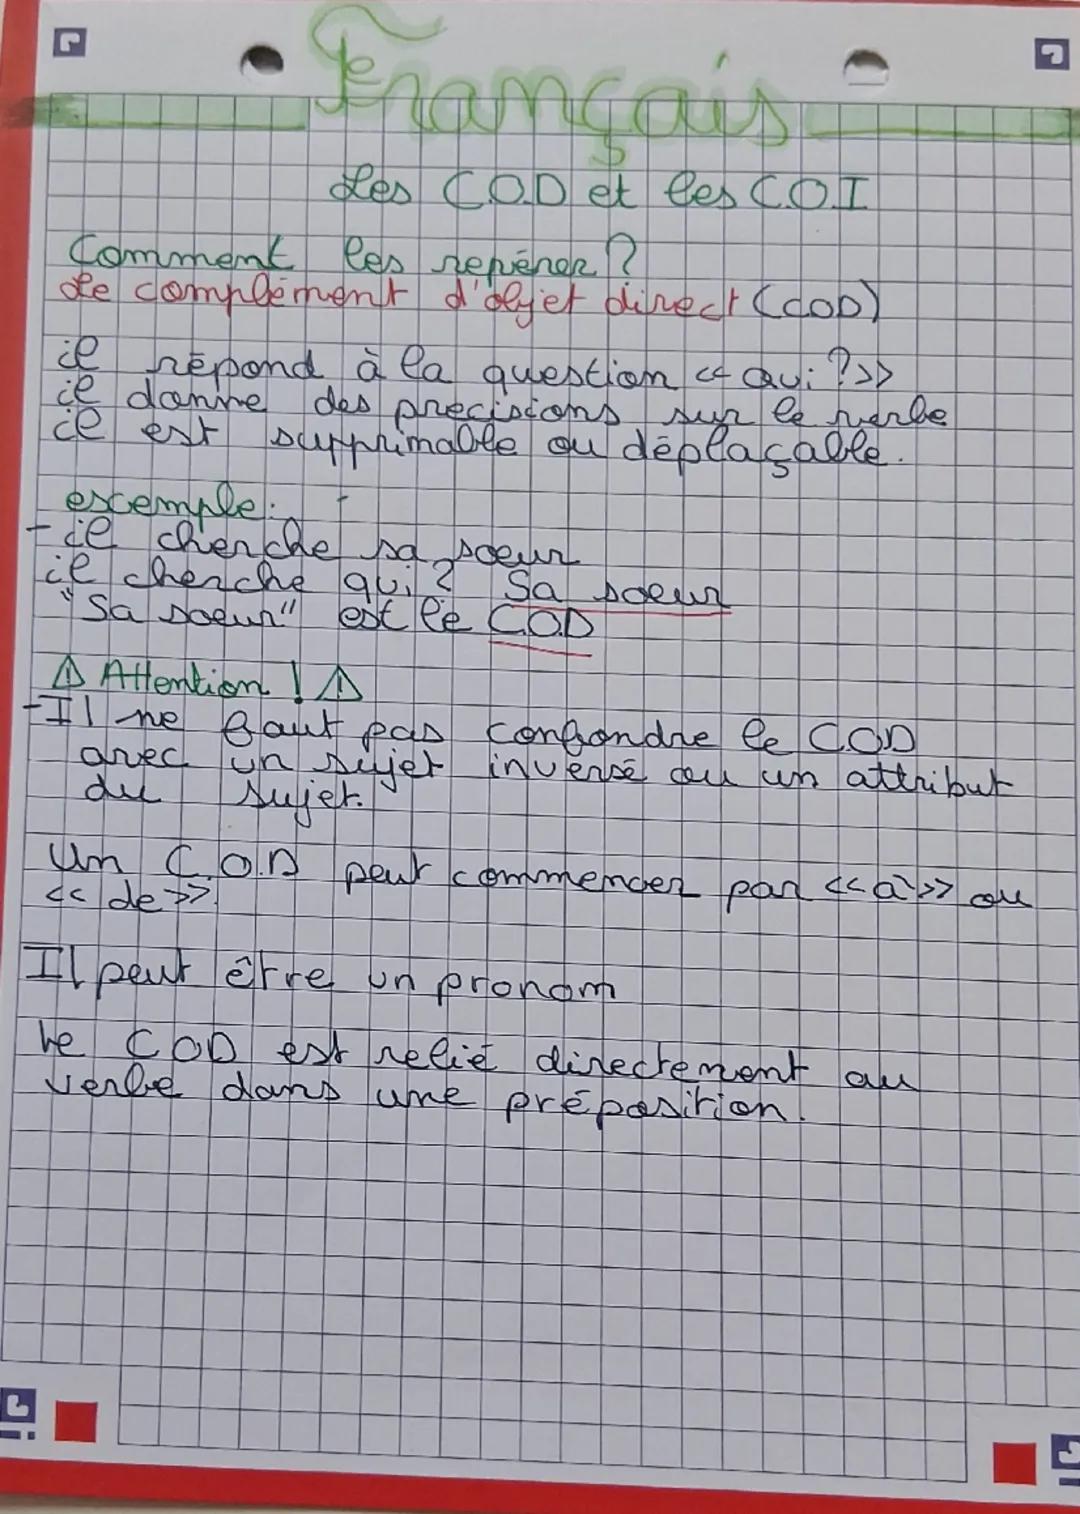 Français
Les C.O.D et les C.O.I
Comment les repérer ?
Le complément d'objet direct (COD)
il répond à la question << Qui ? >>
il donne des precisions sur le verbe
il est supprimable ou déplaçable.
escemple :
- il cherche sa soeur
il cherche qui ? Sa soeur
"Sa soeur" est le C.O.D
⚠ Attention ! ⚠
- Il ne faut pas confondre le COD
avec un sujet inversé ou un attribut
du sujet.
Un C.O.D peut commencer par << à >> ou
<< de >>.
Il peut être un pronom
Le COD est relié directement au
verbe dans une préposition.